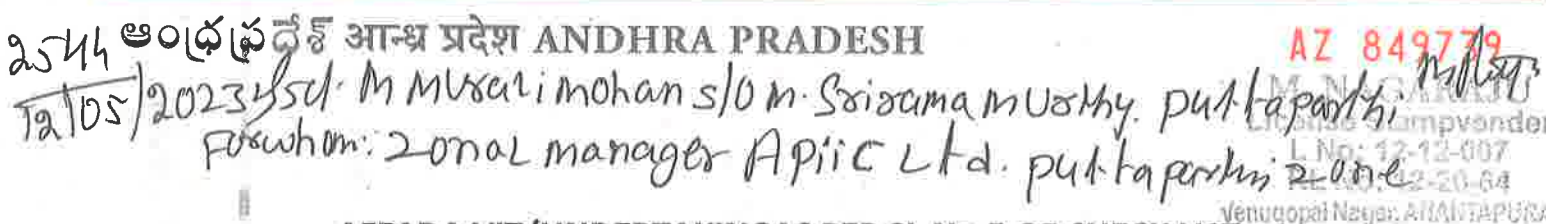 2544 ఆంధ్ర ప్రదేశ్ आन्ध्र प्रदेश ANDHRA PRADESH AZ 849739
12/05/2023 Sd. M Muralimohan s/o M. Srirama Murthy. puttaparthi
forwhom: Zonal manager APiiC Ltd. puttaparthi zone
M. NAGARAJU
License Stampvender
L.No: 12-12-007
-20-64
Venugopal Nagar, ANANTAPURA